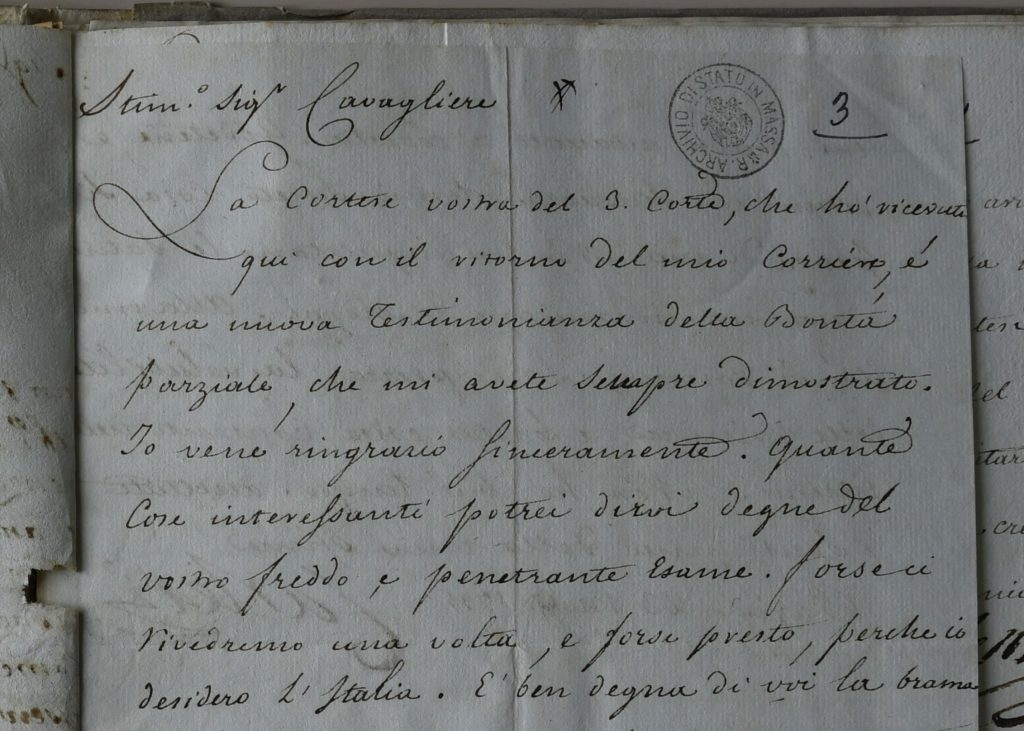 Stim.º Sig.r Cavagliere
ARCHIVIO DI STATO IN MASSA
3
La Cortese vostra del 3. Corte, che hó ricevuta
qui con il ritorno del mio Corriere, é
una nuova Testimonianza della Bontá
parziale, che mi avete sempre dimostrato.
Io vené ringrazio sinceramente. Quante
Cose interessanti potrei dirvi degne del
vostro freddo, e penetrante Esame. forse ci
rivedremo una volta, e forse presto, perche io
desidero l'Italia. E' ben degna di voi la brama